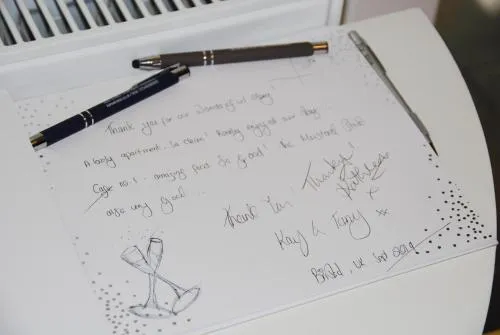 Thank you for our wonderful stay!
A lovely apartment. So clean! Really enjoyed our stay.
Cafe no. 1. amazing food so good! the
also very good..
Thank You! Thanks!
Kathleen
x
Kay & Tony xx